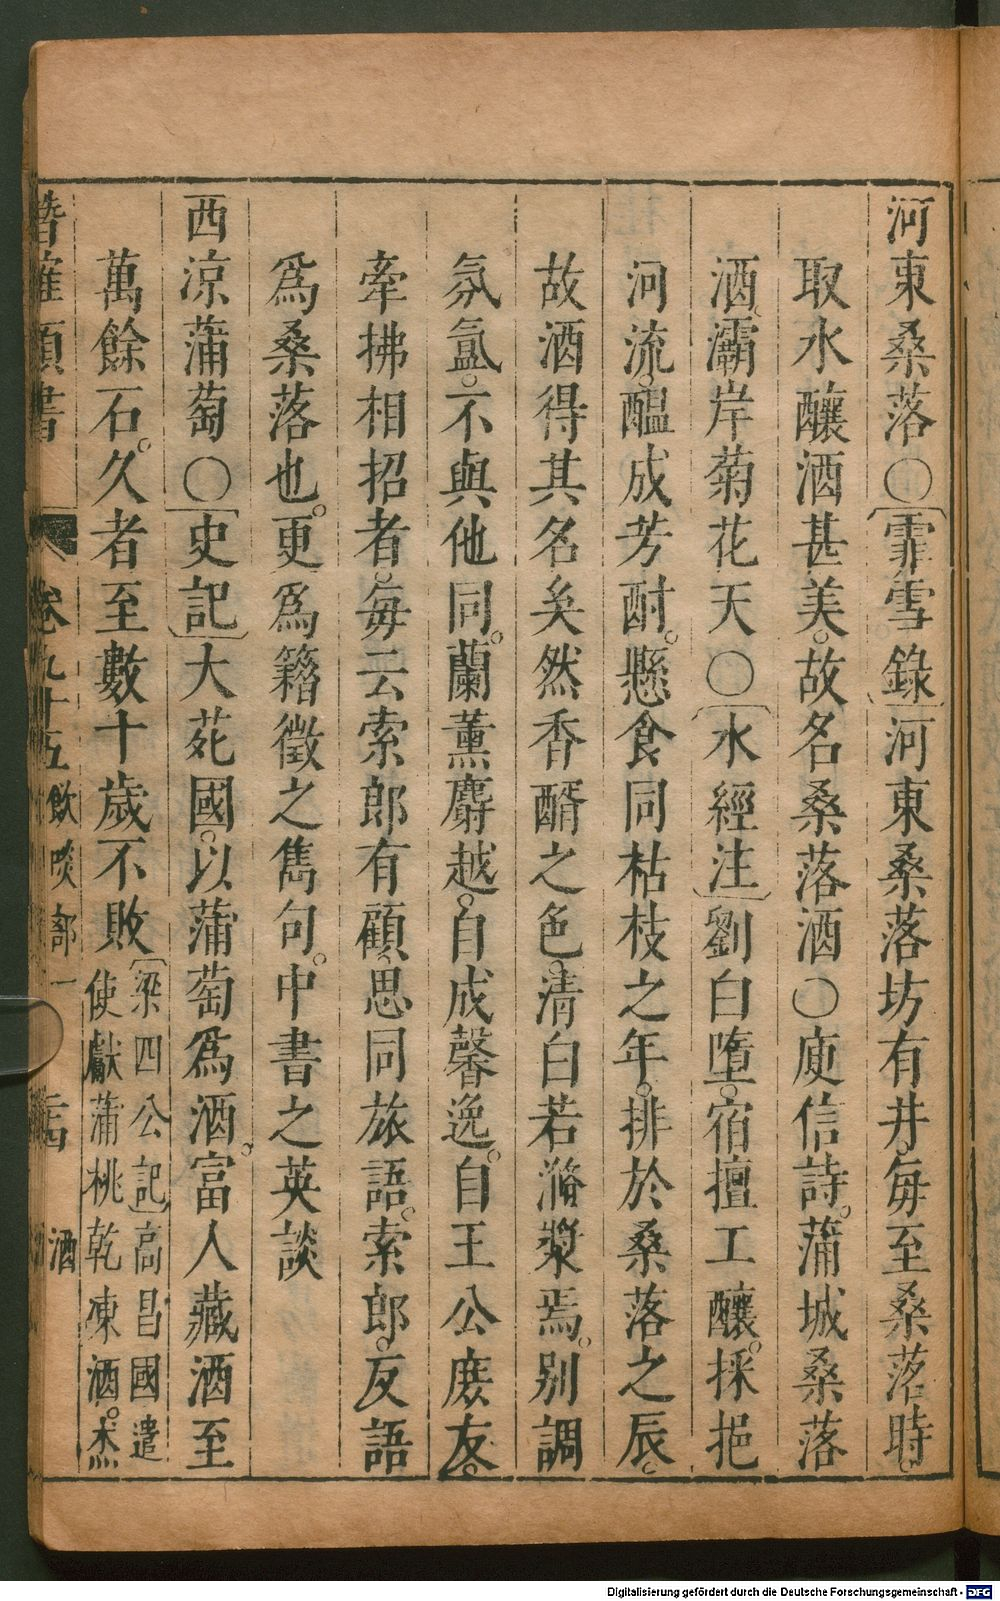 河東桑落〇〔霏雪錄〕河東桑落坊有井每至桑落時
取水釀酒甚美故名桑落酒〇庾信詩蒲城桑落
酒灞岸菊花天〇〔水經注〕劉白墮宿擅工釀採挹
河流醞成芳酎懸食同枯枝之年排於桑落之辰
故酒得其名矣然香醑之色清白若滫漿焉別調
氛氳不與他同蘭薰麝越自成馨逸自王公庶友
牽拂相招者每云索郎有顧思同旅語索郎反語
爲桑落也更爲籍徵之雋句中書之英談
西凉蒲萄〇〔史記〕大菀國以蒲萄爲酒富人藏酒至
萬餘石久者至數十歲不敗
〔梁四公記〕高昌國遣
使獻蒲桃乾凍酒杰
類書 卷九十五 飲啖部一 酒
Digitalisierung gefördert durch die Deutsche Forschungsgemeinschaft - DFG